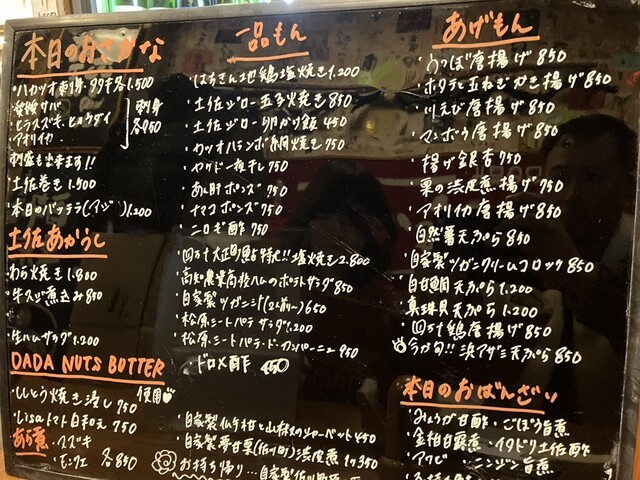 本日のおさかな
・ハガツオ刺身、タタキ各1,500
・ヒラスズキ・ヒョウダイ
・アオリイカ
刺身
各950
刺盛も出来ます!!
・土佐巻き 1,500
・本日のバッテラ(アジ)1,200
土佐あかうし
・わら焼き 1,800
・牛スジ煮込み 850
・生ハムサラダ 1,200
DADA NUTS BUTTER
使用
・ししとう焼き浸し 750
・Lisaトマト白和え 750
あら煮・スズキ
・モンツキ 各850
一品もん
・はちきん地鶏塩焼き 1,200
・土佐ジロー玉子焼き 850
・土佐ジロー卵かけ飯 450
・カツオハランボ網焼き 750
・ヤケド一夜干し 750
・あん肝ポンズ 750
・ナマコポンズ 750
・ニロギ酢 750
・四万十大正町鮎特大!!塩焼き 2,800
・高知農業高校ハムのポテトサラダ 850
・自家製ツガニ汁(2人前〜) 650
・松原ミートパテサラダ 1,200
・松原ミートパテ・ド・カンパーニュ 950
・ドロメ酢 450
・自家製仏手柑と山椒のシャーベット 450
・自家製栗甘栗(佐川町)渋皮煮 1ヶ350
お持ち帰り…自家製
あげもん
・うつぼ唐揚げ 850
・ホタテと玉ねぎかき揚げ 850
・川えび唐揚げ 750
・マンボウ唐揚げ 750
・揚げ銀杏 750
・栗の渋皮煮揚げ 750
・アオリイカ唐揚げ 850
・自然薯天ぷら 850
・自家製ツガニクリームコロッケ 850
・甘鯛天ぷら 1,200
・真珠貝天ぷら 1,200
・四万十鶏唐揚げ 850
今が旬!!浜アザミ天ぷら 850
本日のおばんざい
・みょうが甘酢・ごぼう旨煮
・金柑甘露煮・イタドリ土佐酢
・アワビ・ニンジン旨煮